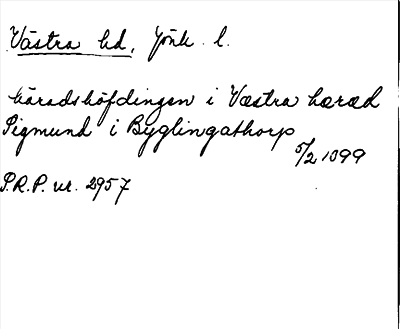 Västra hd, Jönk. l.
häradshöfdingen i Væstra hæræd
Sigmund i Byglingathorp
5/2 1399
S.R.P. nr. 2957